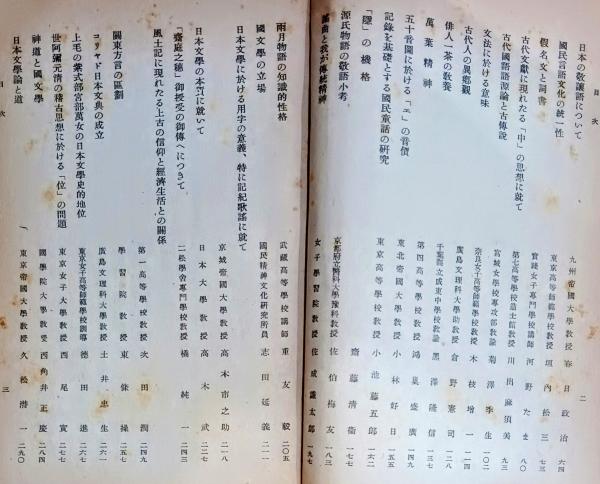 目次 二
日本の敬讓語について 九州帝國大學教授 春日政治 六四
國民言語文化の統一性 東京高等師範學校教授 垣内松三 七三
假名文と詞書 實踐女子專門學校講師 河野たま 八〇
古代文獻に現れたる「中」の思想に就て 第七高等學校造士館教授 川出麻須美 九一
古代國語語源論と古傳説 宮城女學校專攻部教諭 菊澤季生 一〇二
文法に於ける意味 奈良女子高等師範學校教授 木枝增一 一一四
古代人の異鄕觀 廣島文理科大學助教授 倉野憲司 一二八
俳人一茶の教養 千葉縣立成東中學校教諭 黑澤隆信 一三七
萬葉精神 第四高等學校教授 鴻巢盛廣 一四九
五十音圖に於ける「エ」の音價 東北帝國大學教授 小林好日
記錄を基礎とする國民童話の研究 小池藤五郎 一六二
「隱」の機格 齋藤清衞
源氏物語の敬語小考 京都府立醫科大學豫科教授 佐伯梅友 一八三
謠曲と我が傳統精神 女子學習院教授 佐成謙太郎 一九七
目次 三
雨月物語の知識的性格 武藏高等學校講師 重友毅 二〇五
國文學の立場 國民精神文化研究所員 志田延義 二一一
日本文學に於ける用字の意義、特に記紀歌謠に就て 京城帝國大學教授 高木市之助 二一八
日本文學の本質に就いて 日本大學教授 高木武 二二七
「齋庭之穗」御授受の御傳へにつきて 二松學舍專門學校教授 橘純一 二四三
風土記に現れたる上古の信仰と經濟生活との關係 第一高等學校教授 次田潤 二四九
關東方言の區劃 學習院教授 東條操 二五七
コリャド日本文典の成立 廣島文理科大學教授 土井忠生 二六一
上毛の紫式部宮部萬女の日本文學史的地位 東京女子高等師範學校訓導 德田進 二六六
世阿彌元淸の稽古思想に於ける「位」の問題 東京女子大學教授 西尾實 二七七
神道と國文學 國學院大學教授 西角井正慶 二八四
日本文學論と道 東京帝國大學教授 久松潛一 二九〇